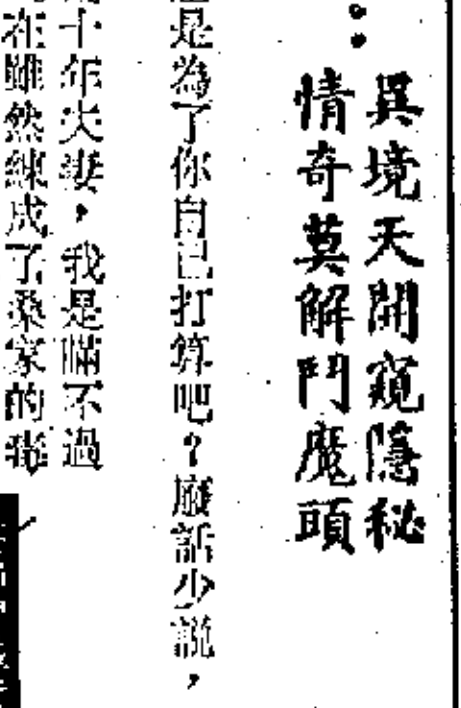 異境天開窺隱秘
情奇莫解鬥魔頭
是為了你自己打算吧？廢話少説，
十年夫妻，我是瞞不過
在雖然練成了桑家的